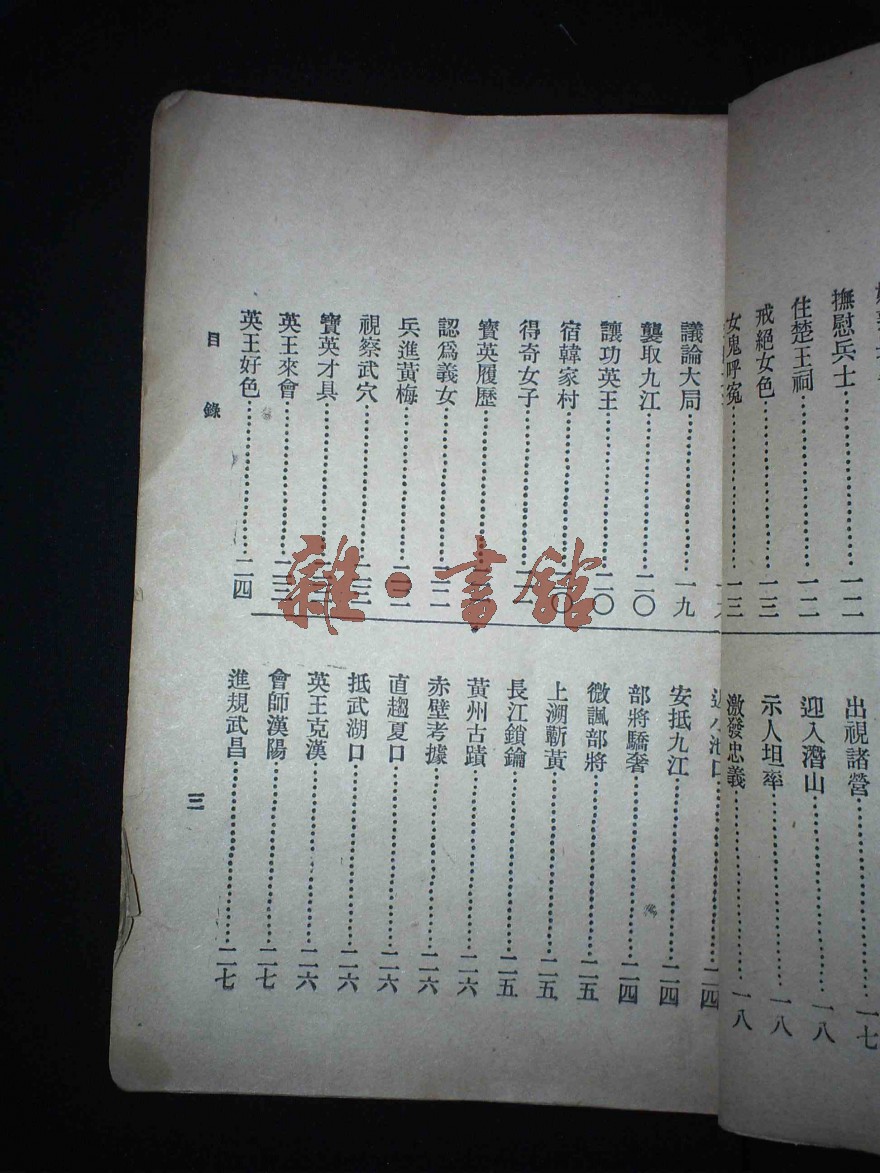 撫慰兵士⋯⋯一二
住楚王祠⋯⋯一二
戒絕女色⋯⋯一三
女鬼呼冤⋯⋯一三
出視諸營⋯⋯一七
迎入潛山⋯⋯一八
示人坦率⋯⋯一八
激發忠義⋯⋯一八
議論大局⋯⋯一九
襲取九江⋯⋯二〇
讓功英王⋯⋯二〇
宿韓家村⋯⋯
得奇女子⋯⋯
寶英履歷⋯⋯
認爲義女⋯⋯二二
兵進黃梅⋯⋯二二
視察武穴⋯⋯
寶英才具⋯⋯
英王來會⋯⋯二三
英王好色⋯⋯二四
小池口⋯⋯二四
安抵九江⋯⋯二四
部將驕奢⋯⋯二四
微諷部將⋯⋯二五
上溯蘄黃⋯⋯二五
長江鎖鑰⋯⋯二五
黃州古蹟⋯⋯二六
赤壁考據⋯⋯二六
直趨夏口⋯⋯二六
抵武湖口⋯⋯二六
英王克漢⋯⋯二六
會師漢陽⋯⋯二七
進規武昌⋯⋯二七
目錄
三
雜·書館